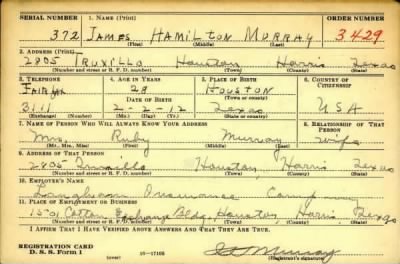 SERIAL NUMBER 1. NAME (Print) ORDER NUMBER
372 JAMES HAMILTON MURRAY 3429
(First) (Middle) (Last)
2. ADDRESS (Print)
2805 TRUXILLO Houston Harris Texas
(Number and street or R. F. D. number) (Town) (County) (State)
3. TELEPHONE 4. AGE IN YEARS 5. PLACE OF BIRTH 6. COUNTRY OF CITIZENSHIP
Fairfax 28 Houston
DATE OF BIRTH (Town or county)
3111 2-2-12 Texas USA
(Exchange) (Number) (Mo.) (Day) (Yr.) (State or country)
7. NAME OF PERSON WHO WILL ALWAYS KNOW YOUR ADDRESS 8. RELATIONSHIP OF THAT PERSON
Mrs. Ruby Murray wife
(Mr., Mrs., Miss) (First) (Middle) (Last)
9. ADDRESS OF THAT PERSON
2805 Truxillo Houston, Harris Texas
(Number and street or R. F. D. number) (Town) (County) (State)
10. EMPLOYER'S NAME
Langham Insurance Company
11. PLACE OF EMPLOYMENT OR BUSINESS
1501 Cotton Exchange Bldg, Houston, Harris Texas
(Number and street or R. F. D. number) (Town) (County) (State)
I AFFIRM THAT I HAVE VERIFIED ABOVE ANSWERS AND THAT THEY ARE TRUE.
REGISTRATION CARD
D. S. S. Form 1 (over) 16—17105 Murray